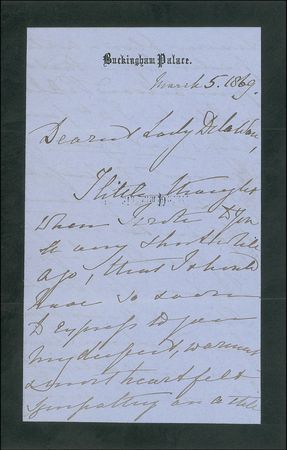 Buckingham Palace.
March 5. 1869.
Dearest Lady Delawarr,
I little thought
when I wrote to you
a very short while
ago, that I should
have so soon
to express to you
my deepest, warmest
& most heartfelt
sympathy on a